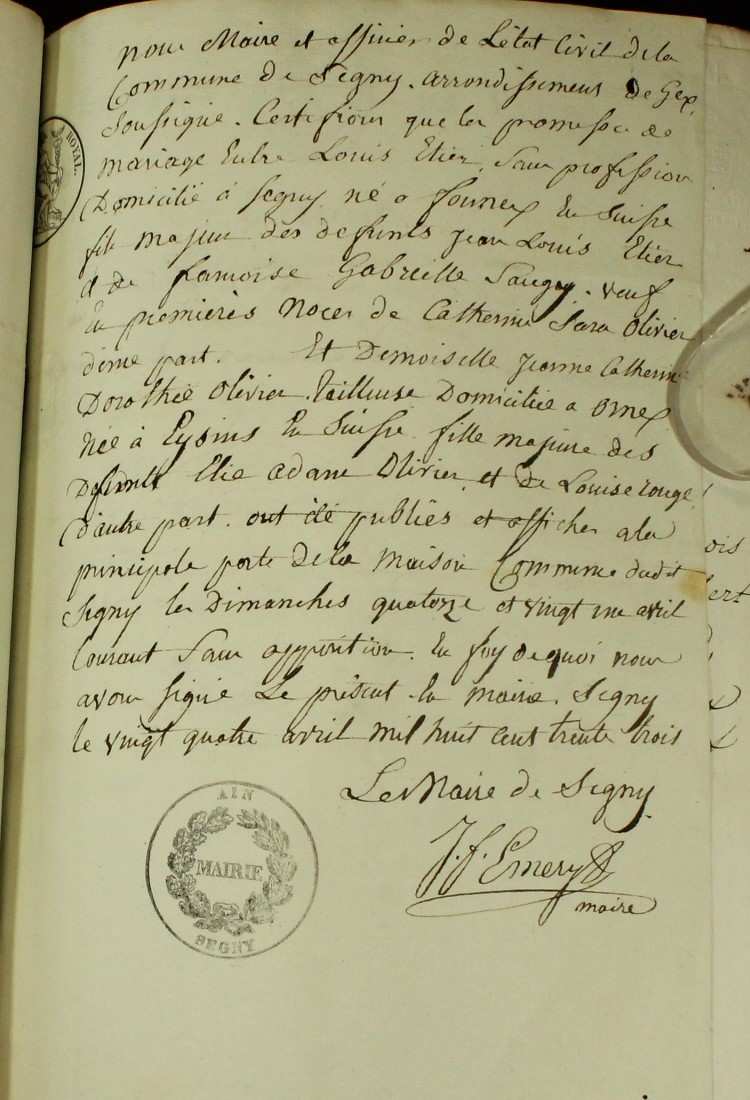 nous Maire et officier de L'état Civil de la
Commune de Segny. arrondissement de Gex,
Soussigné. Certifions que la promesse de
mariage Entre Louis Etier, Sans profession
Domicilié à Segny né a founex En Suisse
fils majeur des defunts Jean Louis Etier
et de francoise Gabrielle Saugy. veuf
En premieres Noces de Catherine Sara Olivier
d'une part. Et Demoiselle Jeanne Catherine
Dorothée Olivier. tailleuse Domiciliée a Ornex
née à Eysins En Suisse fille majeure des
Defunts Elie adam Olivier, et de Louise rouge,
d'autre part. ont été publiés et affichés a la
principale porte de la maison Commune dudit
Segny les Dimanches quatorze et vingt un avril
Courant Sans opposition. En foy de quoi nous
avons signé Le présent En mairie. Segny
le vingt quatre avril mil huit cent trente trois
Le Maire de Segny.
J. f. Emery
maire
AIN
MAIRIE
SEGNY
ROYAL.